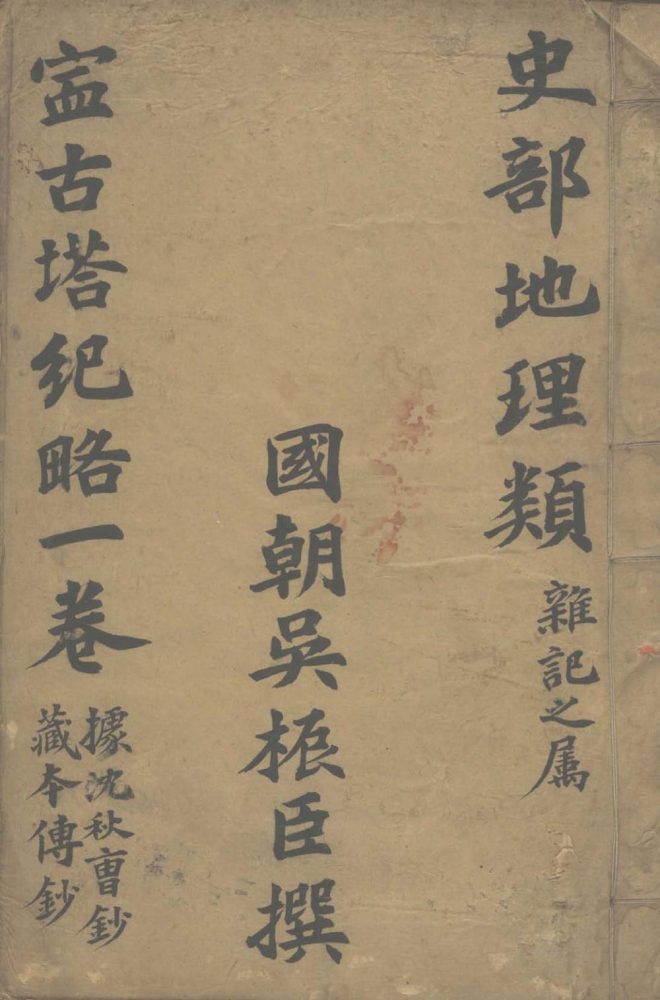 史部地理類 雜記之属
國朝吳桭臣撰
寍古塔紀略一卷
據沈秋曺鈔
藏夲傳鈔